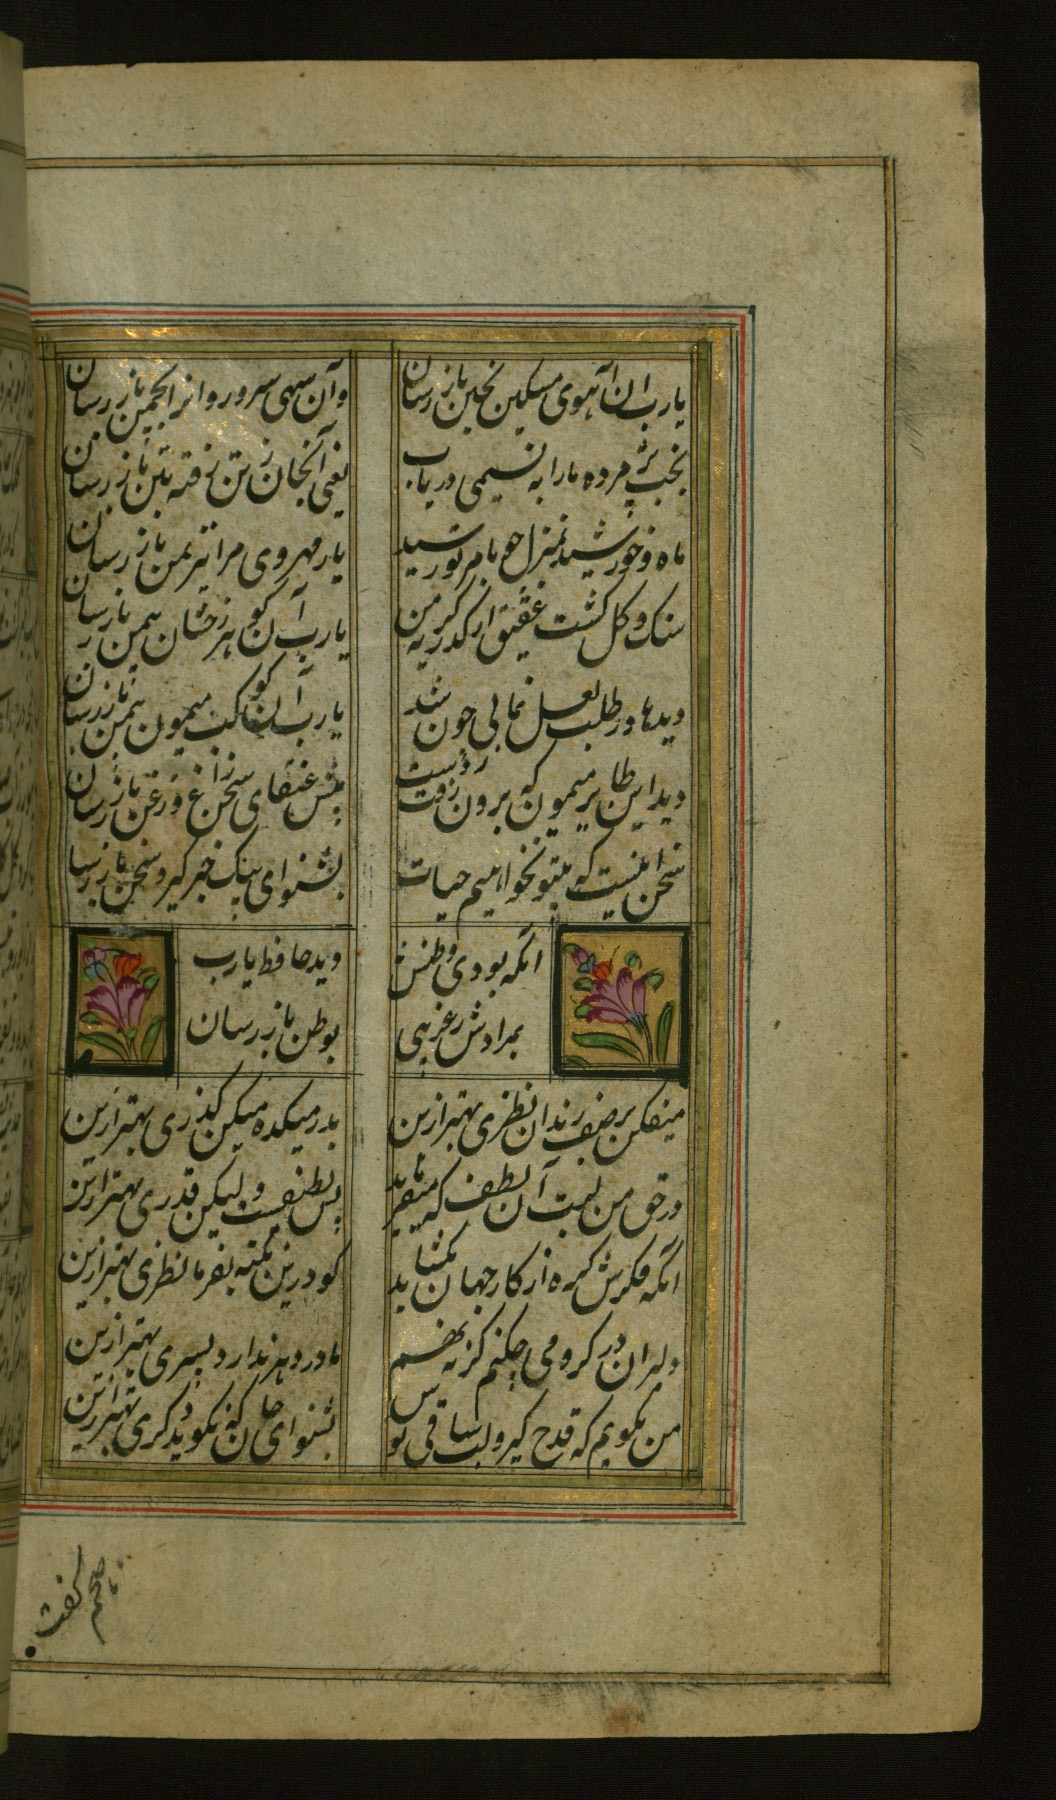 یارب ان آهوی مسکین بختن باز رسان
وآن سهی سرو روانرا بچمن باز رسان
بخت پژمرده مارا به نسیمی دریاب
یعنی آنجان ز تن رفته بتن باز رسان
ماه و خورشید بمنزل چو بامر تو رسید
یار مهروی مرا نیز بمن باز رسان
سنک و کل کشت عقیق از کدر کریه من
یارب آن کوهر رخشان بیمن باز رسان
دیدها در طلب لعل یمانی خون شد
یارب آن کوکب میمون بیمن باز رسان
دید این طایر میمون که برون رفت ز دست
پیش عنقای سخن زاغ و زغن باز رسان
سخن اینست که بیتو نخواهیم حیات
بشنو ای پیک خبر کیر و سخن باز رسان
انکه بودی وطنش دید حافظ یارب
بمرادش ز غریبی بوطن باز رسان
میفکن بر صف رندان نظری بهتر ازین
بدر میکده میکن کذری بهتر ازین
در حق من لبت آن لطف که میفرماید
بس لطیفست ولیکن قدری بهتر ازین
آنکه فکرش کره از کار جهان بکشاید
کو درین نکته بفرما نظری بهتر ازین
دل بدان رود کرامی چکنم کر ندهم
مادر دهر ندارد پسری بهتر ازین
من بکویم که قدح کیر و لب ساقی بوس
بشنو ای جان که نکوید دکری بهتر ازین
ناصحم کفت